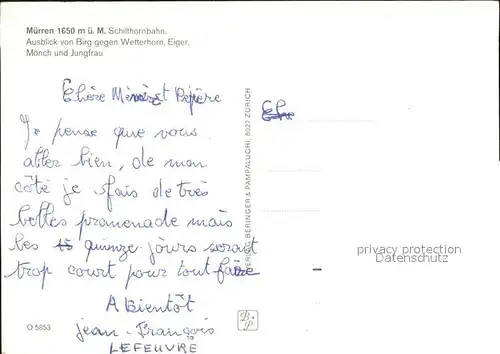 Mürren 1650 m ü. M. Schilthornbahn.
Ausblick von Birg gegen Wetterhorn, Eiger,
Mönch und Jungfrau
Chère Mémé et Pépère
Je pense que vous
aller bien, de mon
côté je fais de très
belles promenade mais
les 15 quinze jours serait
trop court pour tout faire
A Bientôt
jean-François
LEFEUVRE
O 5853
VERLAG BERINGER & PAMPALUCHI, 8027 ZÜRICH
B P
Che
privacy protection
DATENSCHUTZ